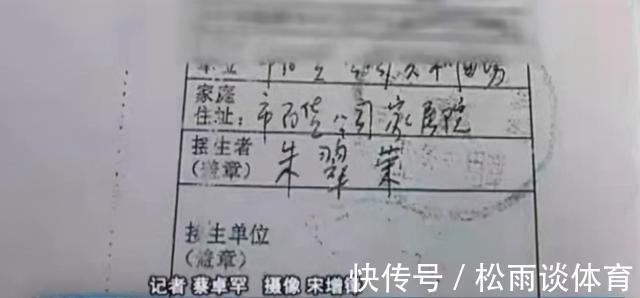 家庭
住址：市百货公司家属院
接生者
(签章) 朱翠荣
接生单位
(签章)
记者 蔡卓罕 摄像 宋增
快传号 / 松雨谈体育